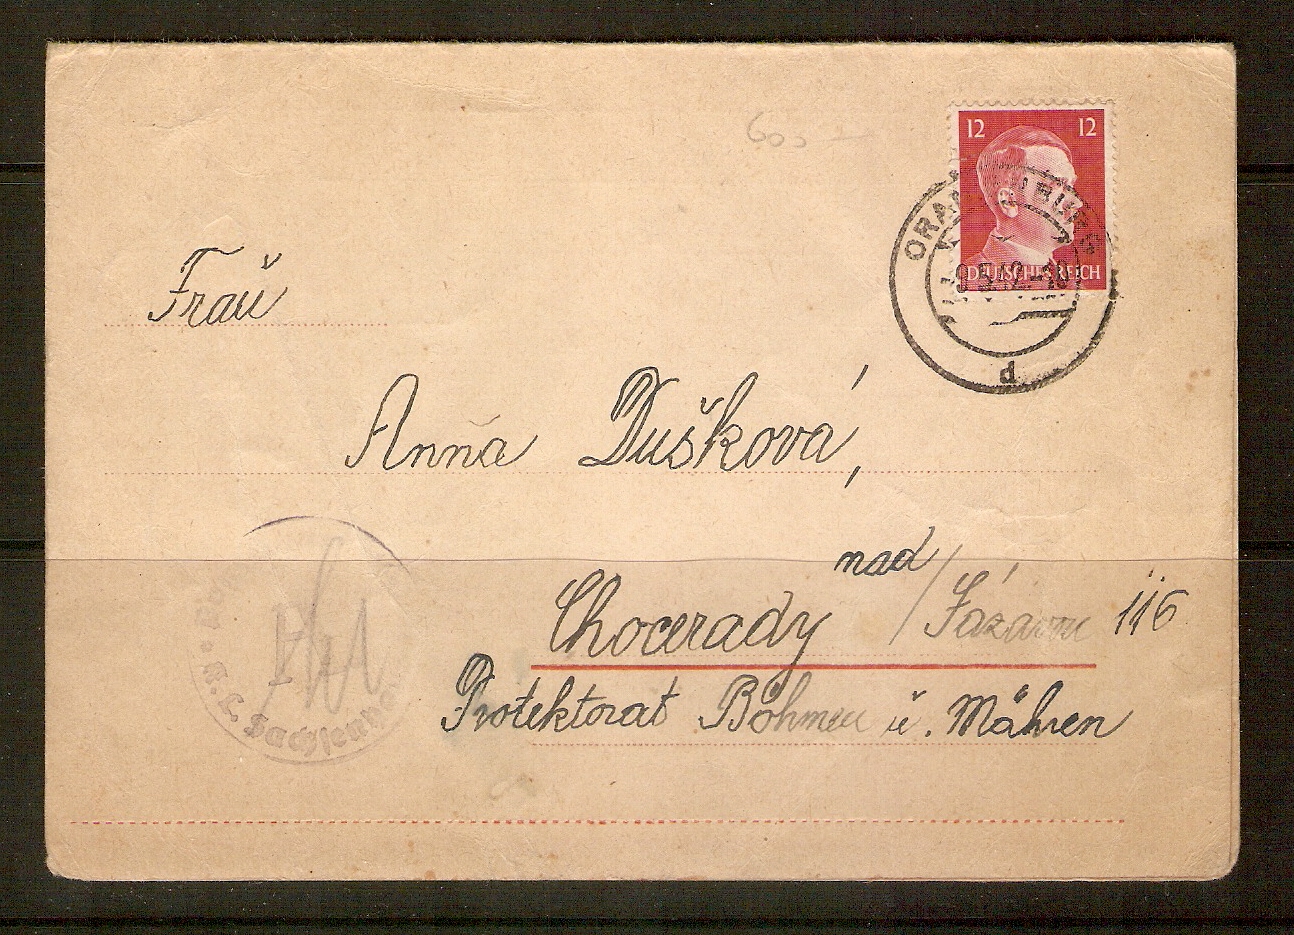 12 12
DEUTSCHES REICH
ORANIENBURG
d
Frau
Anna Dušková,
nad
Chocerady / Sázavou 116
Protektorat Böhmen u. Mähren
K. L. Sachsenhausen